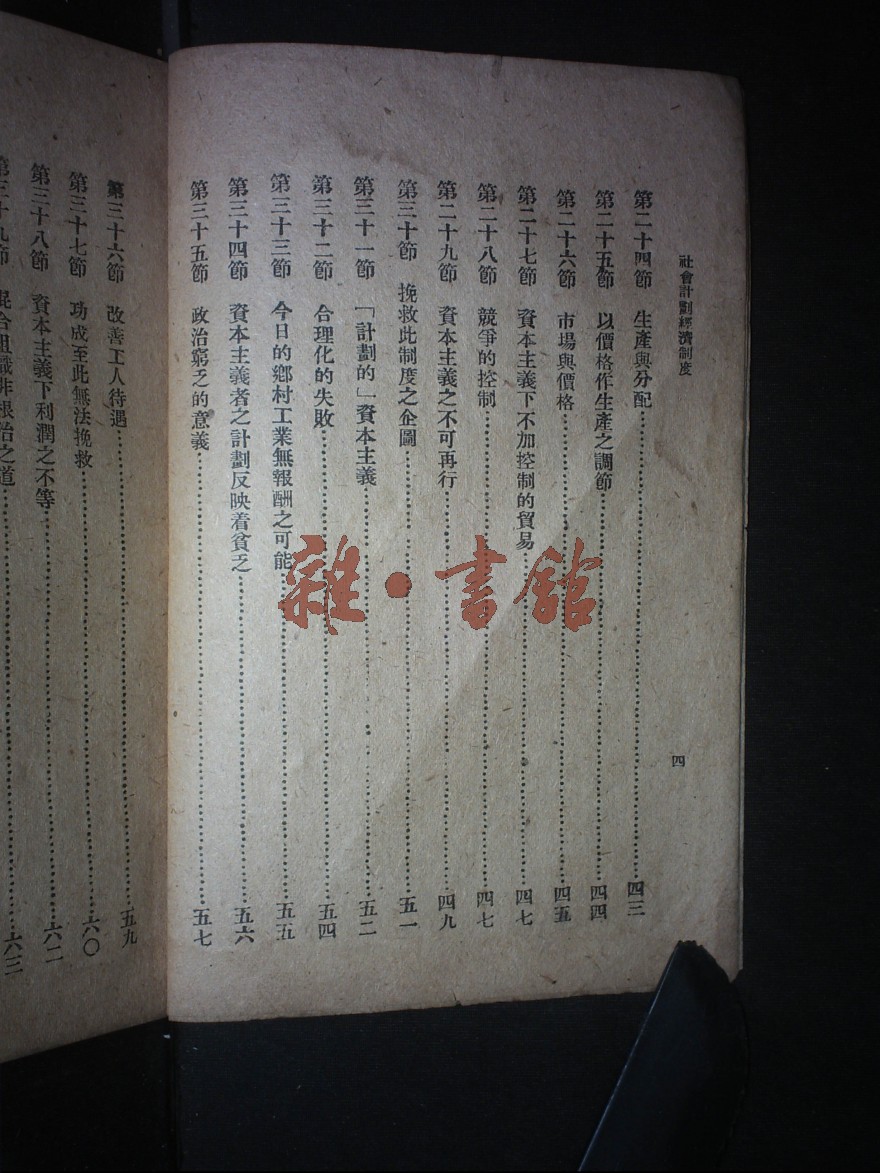 社會計劃經濟制度
四
第二十四節 生產與分配……四三
第二十五節 以價格作生產之調節……四四
第二十六節 市場與價格……四五
第二十七節 資本主義下不加控制的貿易……四七
第二十八節 競爭的控制……四七
第二十九節 資本主義之不可再行……四九
第三十節 挽救此制度之企圖……五一
第三十一節 「計劃的」資本主義……五二
第三十二節 合理化的失敗……五四
第三十三節 今日的鄉村工業無報酬之可能……五五
第三十四節 資本主義者之計劃反映着貧乏……五六
第三十五節 政治窮乏的意義……五七
第三十六節 改善工人待遇……五九
第三十七節 功成至此無法挽救……六〇
第三十八節 資本主義下利潤之不等……六二
第三十九節 混合組織非根治之道……六三
雜·書館